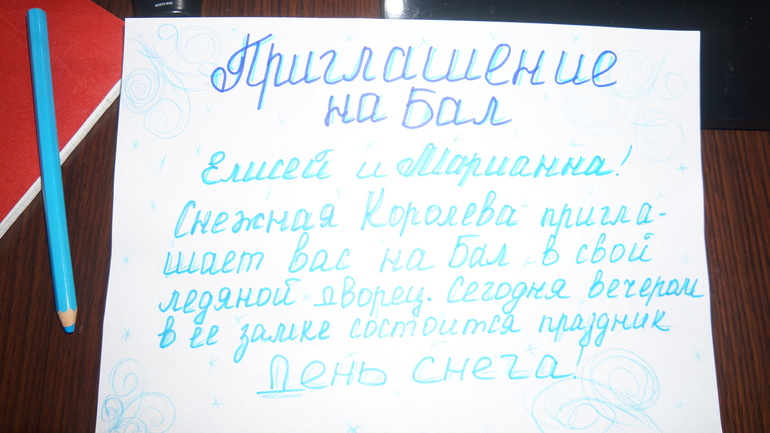 Приглашение
на Бал
Елисей и Марианна!
Снежная Королева пригла-
шает вас на Бал в свой
ледяной дворец. Сегодня вечером
в ее замке состоится праздник
День снега!